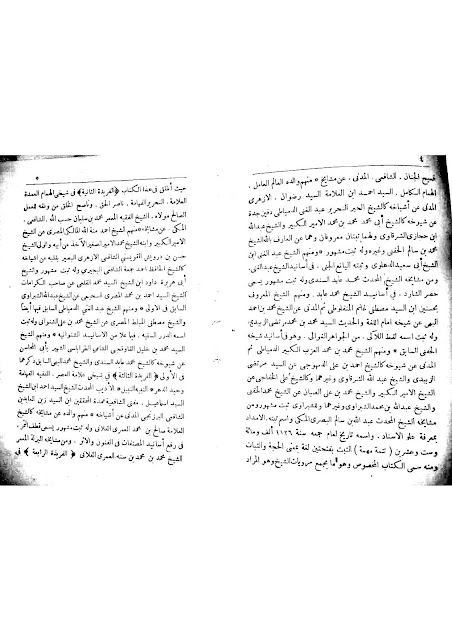 ٤
فسيح الجنان . الشافعي . المدني . عن مشايخ * منهم والده العالم العامل .
الهمام الكامل . السيد احمد ابن العلامة السيد رضوان . الازهري
عن أشياخه كالشيخ الحبر النحرير عبد الغني الدمياطي دفين جدة
عن شيوخه كالشيخ أبي محمد محمد بن محمد الامير الكبير والشيخ عبد الله
ابن حجازي الشرقاوي ولهما ثبتان معروفان وهما عن العارف بالله الشيخ
محمد بن سالم الحفني وغيره وله ثبت مشهور * ومنهم الشيخ عبد الغني ابن
الشيخ أبي سعيد الدهلوي وثبته اليانع الجني . في أسانيد الشيخ عبد الغني .
ومن مشايخه الشيخ المحدث محمد عابد السندي وله ثبت مشهور يسمى
حصر الشارد . في أسانيد الشيخ محمد عابد * ومنهم الشيخ المعروف
ابن السيد مصطفى غانم المنفلوطي ثم المدني عن الشيخ محمد بن احمد
البهي عن شيخه امام اللغة والحديث السيد محمد بن محمد مرتضى الزبيدي
وله ثبت اسمه لقط اللآلى . من الجواهر الغوالى . وهو في أسانيد شيخه
الحفني السابق * ومنهم الشيخ محمد بن محمد العزب الكبير الدمياطي ثم
المدني عن شيوخه كالشيخ احمد بن علي الدمهوجي عن السيد مرتضى
الزبيدي والشيخ عبد الله الشرقاوي وغيرهما وكالشيخ علي الخفاجي عن
الشيخ الامير الكبير والشيخ محمد بن علي الصبان عن الشيخ محمد الحفني
والشيخ عبد الله بن محمد الشبراوي وغيرهما وللشبراوي ثبت مشهور ومن
مشايخه الشيخ المحدث عبد الله بن سالم البصري المكي واسم ثبته الامداد
بمعرفة علو الاسناد . واسمه تاريخ لعام جمعه سنة ١١٢٦ ألف ومائة
وست وعشرين ( تتمة مهمة ) الثبت بفتحتين لغة بمعنى الحجة والثبات
ومنه سمى الكتاب المخصوص وهو ما يجمع مرويات الشيخ وهو المراد
٥
حيث أطلق في هذا الكتاب ﴿ الفريدة الثانية ﴾ في شيخي الهمام العمدة
العلامة . النحرير الفهامة . ناصر الحق . وناصح الخلق من وفقه للعمل
الصالح مولاه . الشيخ الفقيه المعمر محمد بن سليمان حسب الله . الشافعي .
المكي . عن مشايخ * منهم الشيخ احمد منة الله المالكي المصري عن الشيخ
الامير الكبير وابنه الشيخ محمد الامير الصغير الآخذ عن أبيه وعن الشيخ
حسن بن درويش القويسني الشافعي الازهري البصير بقلبه عن اشياخه
كالشيخ الحافظ احمد جمعة الشافعي البجيرمي وله ثبت مشهور والشيخ
أبي هريرة داود ابن الشيخ السيد محمد القلعي عن صاحب الكرامات
الشيخ السيد احمد بن محمد المصري السحيمي عن الشيخ عبد الله الشبراوي
السابق في الاولى * ومنهم الشيخ عبد الغني الدمياطي السابق فيها أيضاً
والشيخ مصطفى المبلط المصري عن الشيخ محمد بن علي الشنواني وله ثبت
اسمه الدرر السنية . فيما علا من الاسانيد الشنوانية * ومنهم الشيخ
السيد محمد بن خليل القاوقجي الشامي الطرابلسي الشهير بأبي المحاسن
عن شيوخه كالشيخ محمد عابد السندي والشيخ محمد البهي السابق ذكرهما
في الاولى ﴿ الفريدة الثالثة ﴾ في شيخي علامة العصر . الفقيه الفهامة
وحيد الدهر * النبيه النبيل * الاديب المحدث الشيخ السيد احمد ابن الشيخ
السيد اسماعيل . مفتي الشافعية عمدة المحققين ابن السيد زين العابدين
الشافعي البرزنجي المدني عن أشياخه * منهم والده عن مشايخه كالشيخ
العلامة صالح بن محمد العمري الفلاني وله ثبت مشهور يسمى قطف الثمر .
في رفع أسانيد المصنفات في الفنون والاثر . ومن مشايخه البركة المعمر
الشيخ محمد بن محمد بن سنه العمري الفلاني ﴿ الفريدة الرابعة ﴾ في